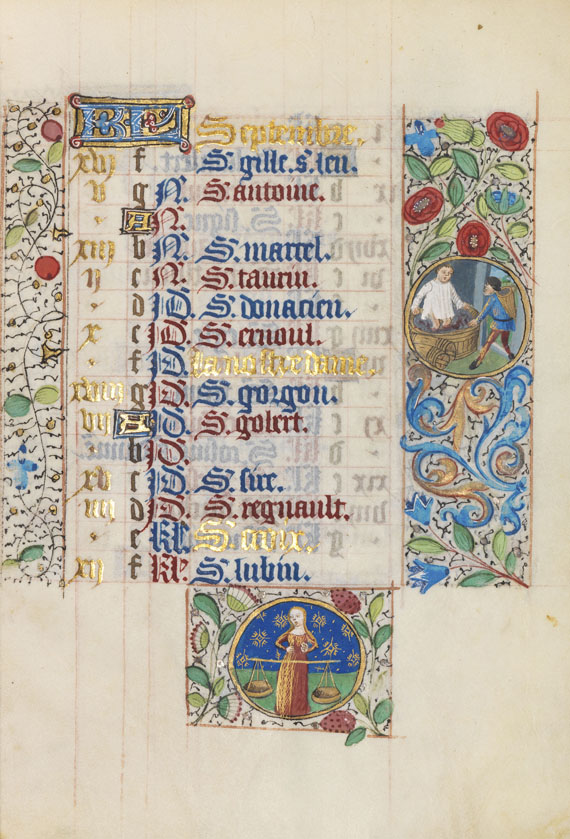 KL Septembre.
xvij f S. gille s. leu.
v g N. S. antoine.
. A N.
xiij b N. S. martel.
ij c N. S. taurin.
. d N. S. donacien.
x e ID. S. ernoul.
. f ID. la nostre dame.
xviij g ID. S. gorgon.
vij A ID. S. golert.
. b ID.
xv c ID. S. sire.
iiij d ID. S. regnault.
. e Kl. S. croix.
xij f Kl. S. lubin.